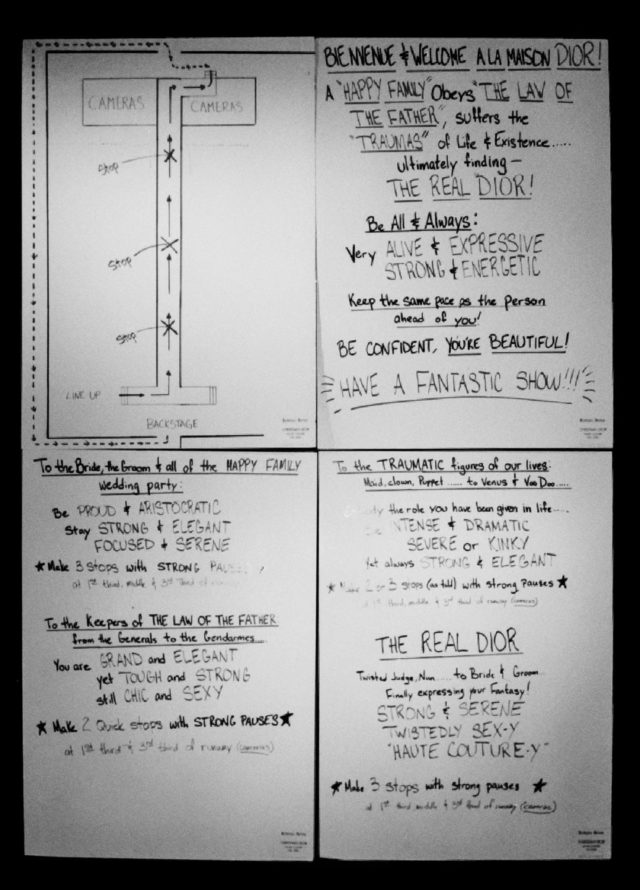 CAMERAS
CAMERAS
STOP
STOP
STOP
LINE UP
BACKSTAGE
BIENVENUE & WELCOME A LA MAISON DIOR!
A "HAPPY FAMILY" Obeys "THE LAW OF
THE FATHER", suffers the
"TRAUMAS" of Life & Existence.....
ultimately finding —
THE REAL DIOR!
Be All & Always:
Very ALIVE & EXPRESSIVE
STRONG & ENERGETIC
Keep the same pace as the person
ahead of you!
BE CONFIDENT, YOU'RE BEAUTIFUL!
HAVE A FANTASTIC SHOW!!!
To the Bride, the Groom & all of the HAPPY FAMILY
wedding party:
Be PROUD & ARISTOCRATIC
Stay STRONG & ELEGANT
FOCUSED & SERENE
★ Make 3 stops with STRONG
at 1st third, middle & 3rd third of
To the Keepers of THE LAW OF THE FATHER
from the Generals to the Gendarmes....
You are GRAND and ELEGANT
yet TOUGH and STRONG
still CHIC and SEXY
★ Make 2 Quick stops with STRONG PAUSES ★
at 1st third & 3rd third of runway (cameras)
To the TRAUMATIC figures of our lives:
Maid, clown, Puppet ..... to Venus & VooDoo.....
the role you have been given in life....
& DRAMATIC
SEVERE or KINKY
Yet always STRONG & ELEGANT
2 or 3 stops (as told) with strong Pauses ★
third, middle & 3rd third of runway (cameras)
THE REAL DIOR
Twisted Judge, Nun..... to Bride & Groom
Finally expressing your Fantasy!
STRONG & SERENE
TWISTEDLY SEX-Y
"HAUTE COUTURE-Y"
★ Make 3 stops with strong pauses ★
at 1st third middle & 3rd third of runway (cameras)